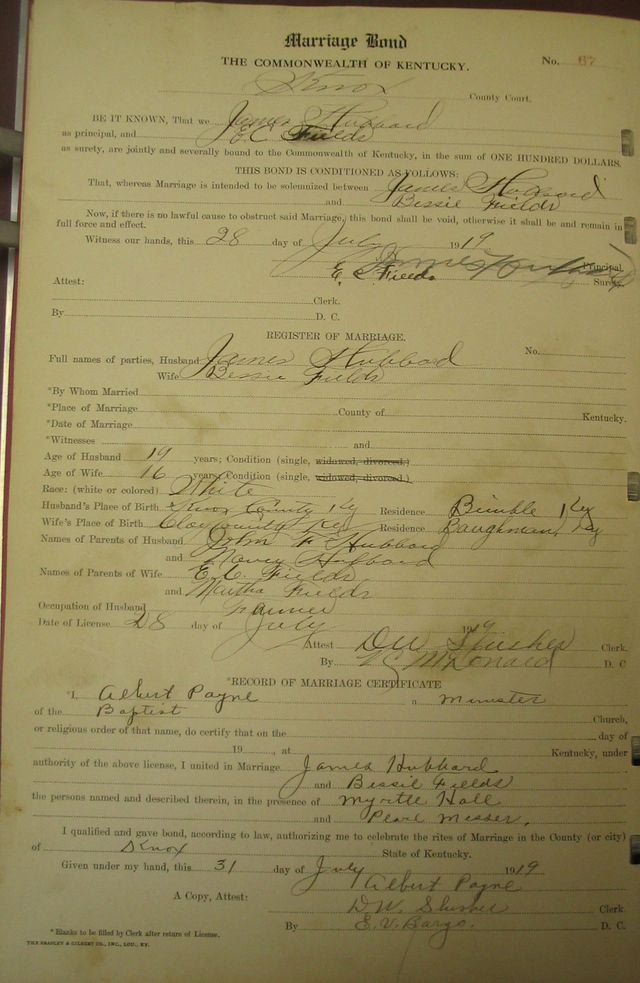 Marriage Bond
THE COMMONWEALTH OF KENTUCKY.
No. 67
Knox County Court.
BE IT KNOWN, That we James Hubbard
as principal, and E C Fields
as surety, are jointly and severally bound to the Commonwealth of Kentucky, in the sum of ONE HUNDRED DOLLARS.
THIS BOND IS CONDITIONED AS FOLLOWS:
That, whereas Marriage is intended to be solemnized between James Hubbard
and Bessie Fields
Now, if there is no lawful cause to obstruct said Marriage, this bond shall be void, otherwise it shall be and remain in
full force and effect.
Witness our hands, this 28 day of July 1919
James Hubbard Principal
E. C. Fields Surety
Attest:
Clerk.
By D. C.
REGISTER OF MARRIAGE.
Full names of parties, Husband James Hubbard No.
Wife Bessie Fields
*By Whom Married
*Place of Marriage County of Kentucky.
*Date of Marriage
*Witnesses and
Age of Husband 19 years; Condition (single, widowed, divorced.)
Age of Wife 16 years; Condition (single, widowed, divorced.)
Race: (white or colored) White
Husband's Place of Birth Knox County Ky Residence Bimble Ky
Wife's Place of Birth Clay County Ky Residence Baughman, Ky
Names of Parents of Husband John F Hubbard
and Nancy Hubbard
Names of Parents of Wife E. C. Fields
and Martha Fields
Occupation of Husband Farmer
Date of License 28 day of July 1919
Attest D W Slusher Clerk.
By McDonald D. C
*RECORD OF MARRIAGE CERTIFICATE
*I, Albert Payne a minister
of the Baptist Church,
or religious order of that name, do certify that on the day of
19 , at Kentucky, under
authority of the above license, I united in Marriage James Hubbard
and Bessie Fields
the persons named and described therein, in the presence of Myrtle Hall
and Pearl Messer,
I qualified and gave bond, according to law, authorizing me to celebrate the rites of Marriage in the County (or city)
of Knox State of Kentucky.
Given under my hand, this 31 day of July 1919
Albert Payne
A Copy, Attest: D W. Slusher Clerk
By E. V. Bargo. D. C.
*Blanks to be filled by Clerk after return of License.
THE BRADLEY & GILBERT CO., INC., LOU., KY.